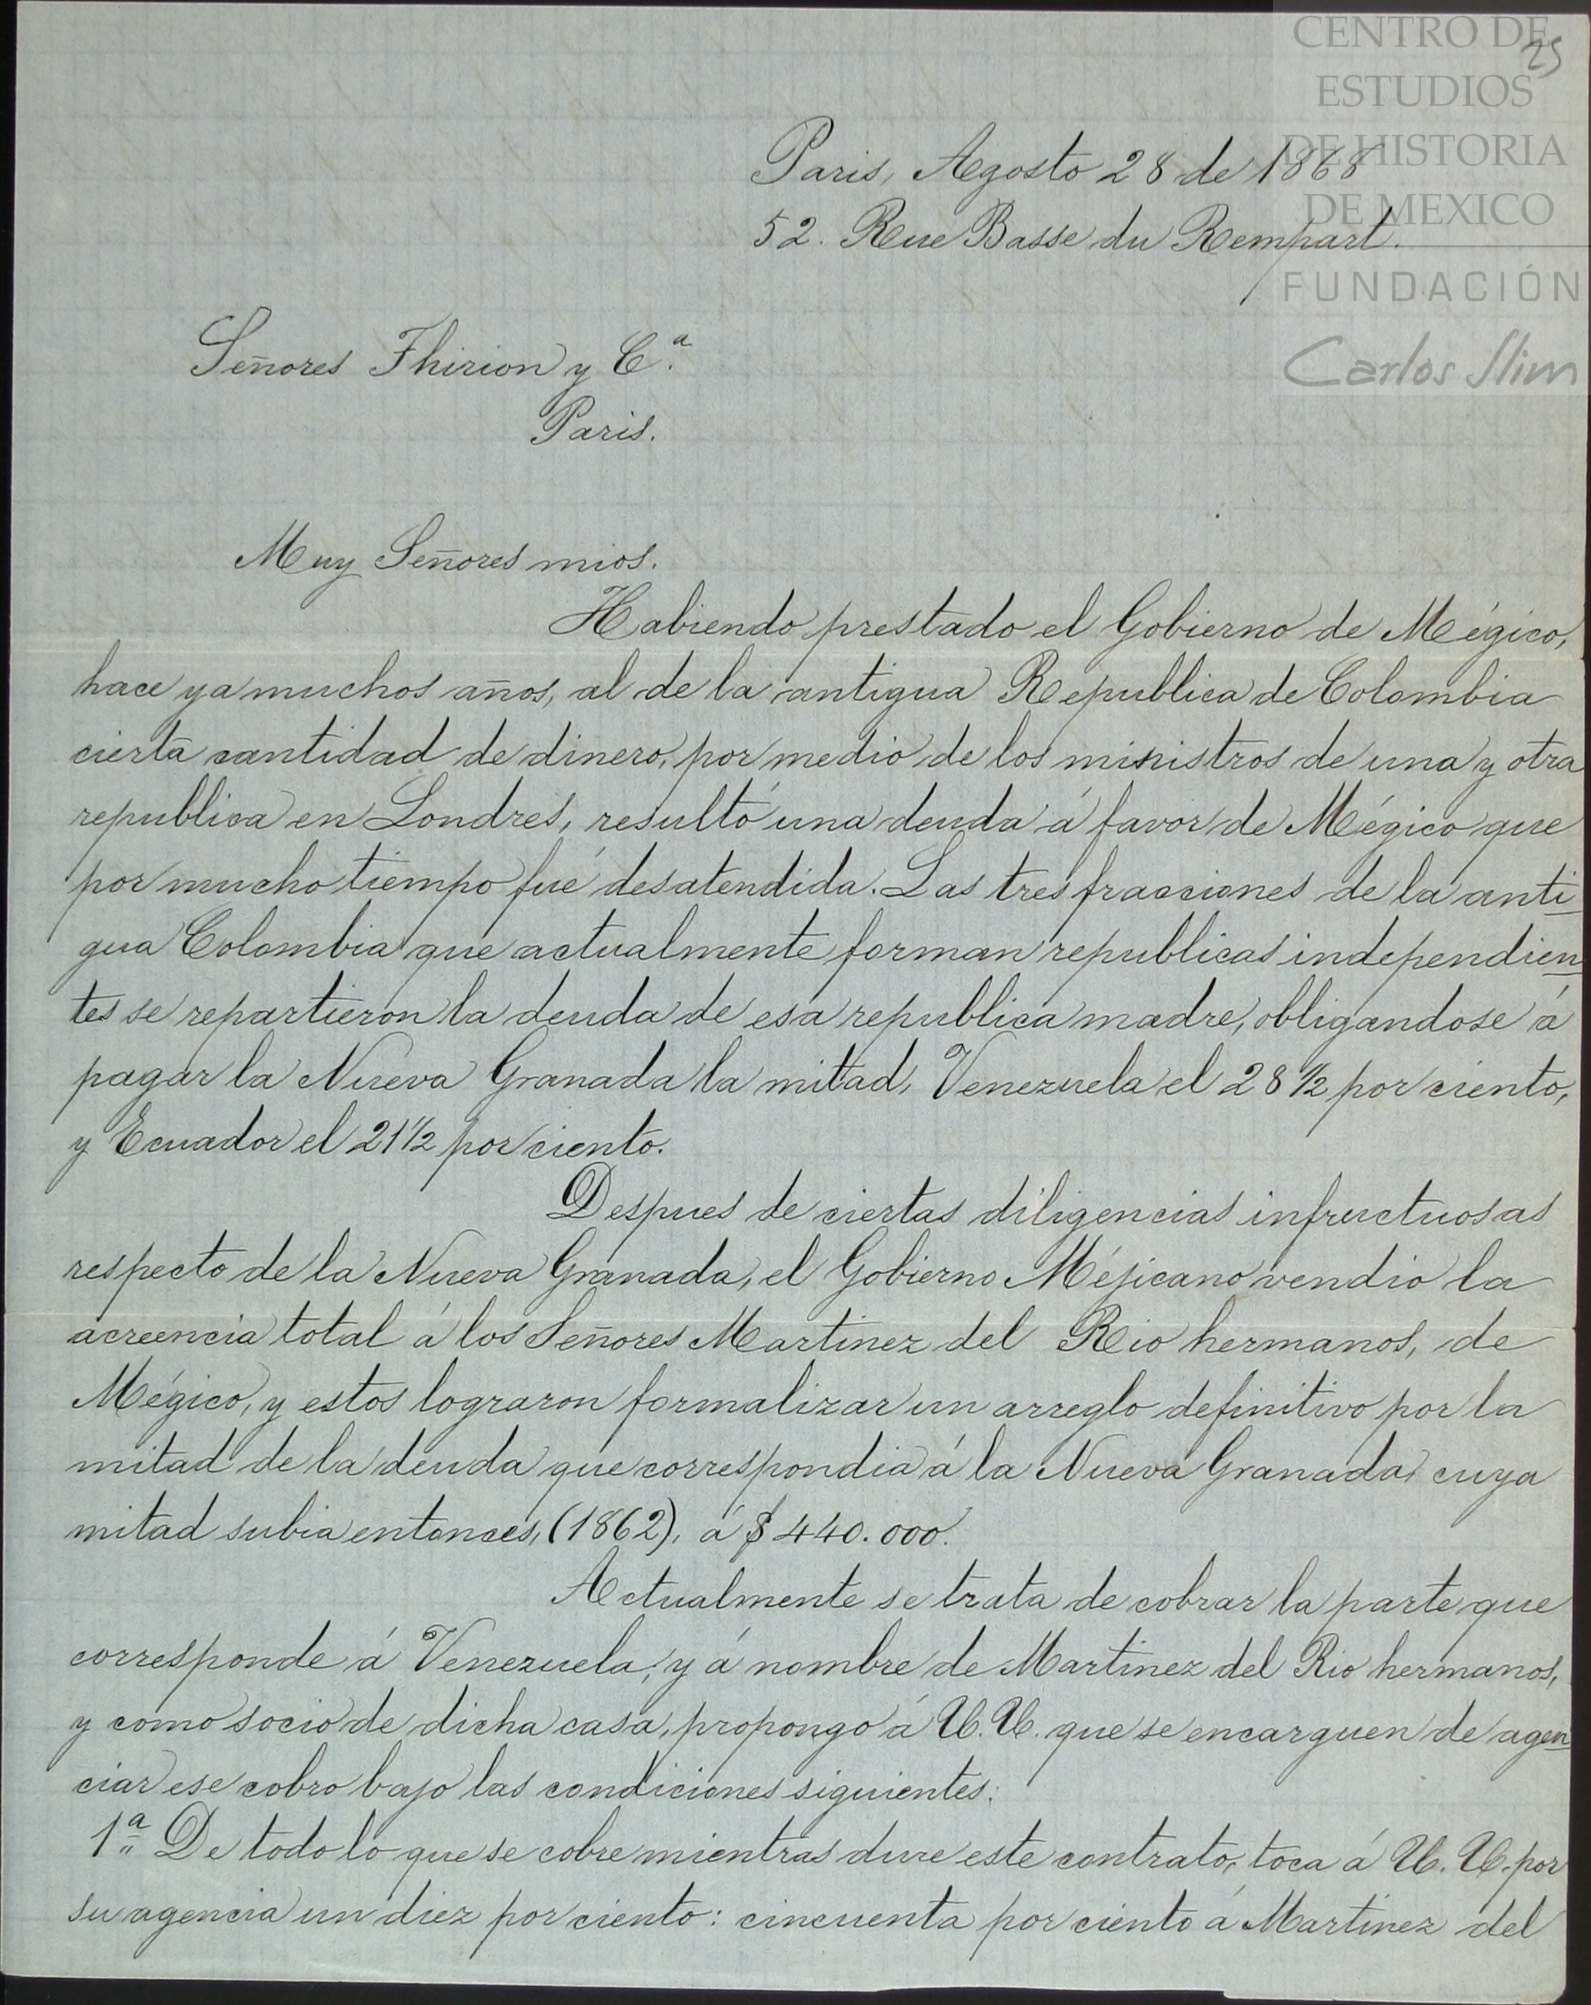 CENTRO DE
ESTUDIOS
DE HISTORIA
DE MEXICO
FUNDACIÓN
Carlos Slim
25
Paris, Agosto 28 de 1868
52. Rue Basse du Rempart.
Señores Thirion y Cª.
Paris.
Muy Señores mios.
Habiendo prestado el Gobierno de Mégico,
hace ya muchos años, al de la antigua Republica de Colombia
cierta cantidad de dinero, por medio de los ministros de una y otra
republica en Londres, resultó una deuda á favor de Mégico que
por mucho tiempo fué desatendida. Las tres fracciones de la anti-
gua Colombia que actualmente forman republicas independien-
tes se repartieron la deuda de esa republica madre, obligandose á
pagar la Nueva Granada la mitad, Venezuela el 28 1/2 por ciento,
y Ecuador el 21 1/2 por ciento.
Despues de ciertas diligencias infructuosas
respecto de la Nueva Granada, el Gobierno Méjicano vendio la
acreencia total á los Señores Martinez del Rio hermanos, de
Mégico, y estos lograron formalizar un arreglo definitivo por la
mitad de la deuda que correspondia á la Nueva Granada, cuya
mitad subia entonces, (1862), á $440.000.
Actualmente se trata de cobrar la parte que
corresponde á Venezuela; y á nombre de Martinez del Rio hermanos,
y como socio de dicha casa, propongo á U.U. que se encarguen de agen-
ciar ese cobro bajo las condiciones siguientes:
1ª. De todo lo que se cobre mientras dure este contrato, toca á U.U. por
su agencia un diez por ciento: cincuenta por ciento á Martinez del